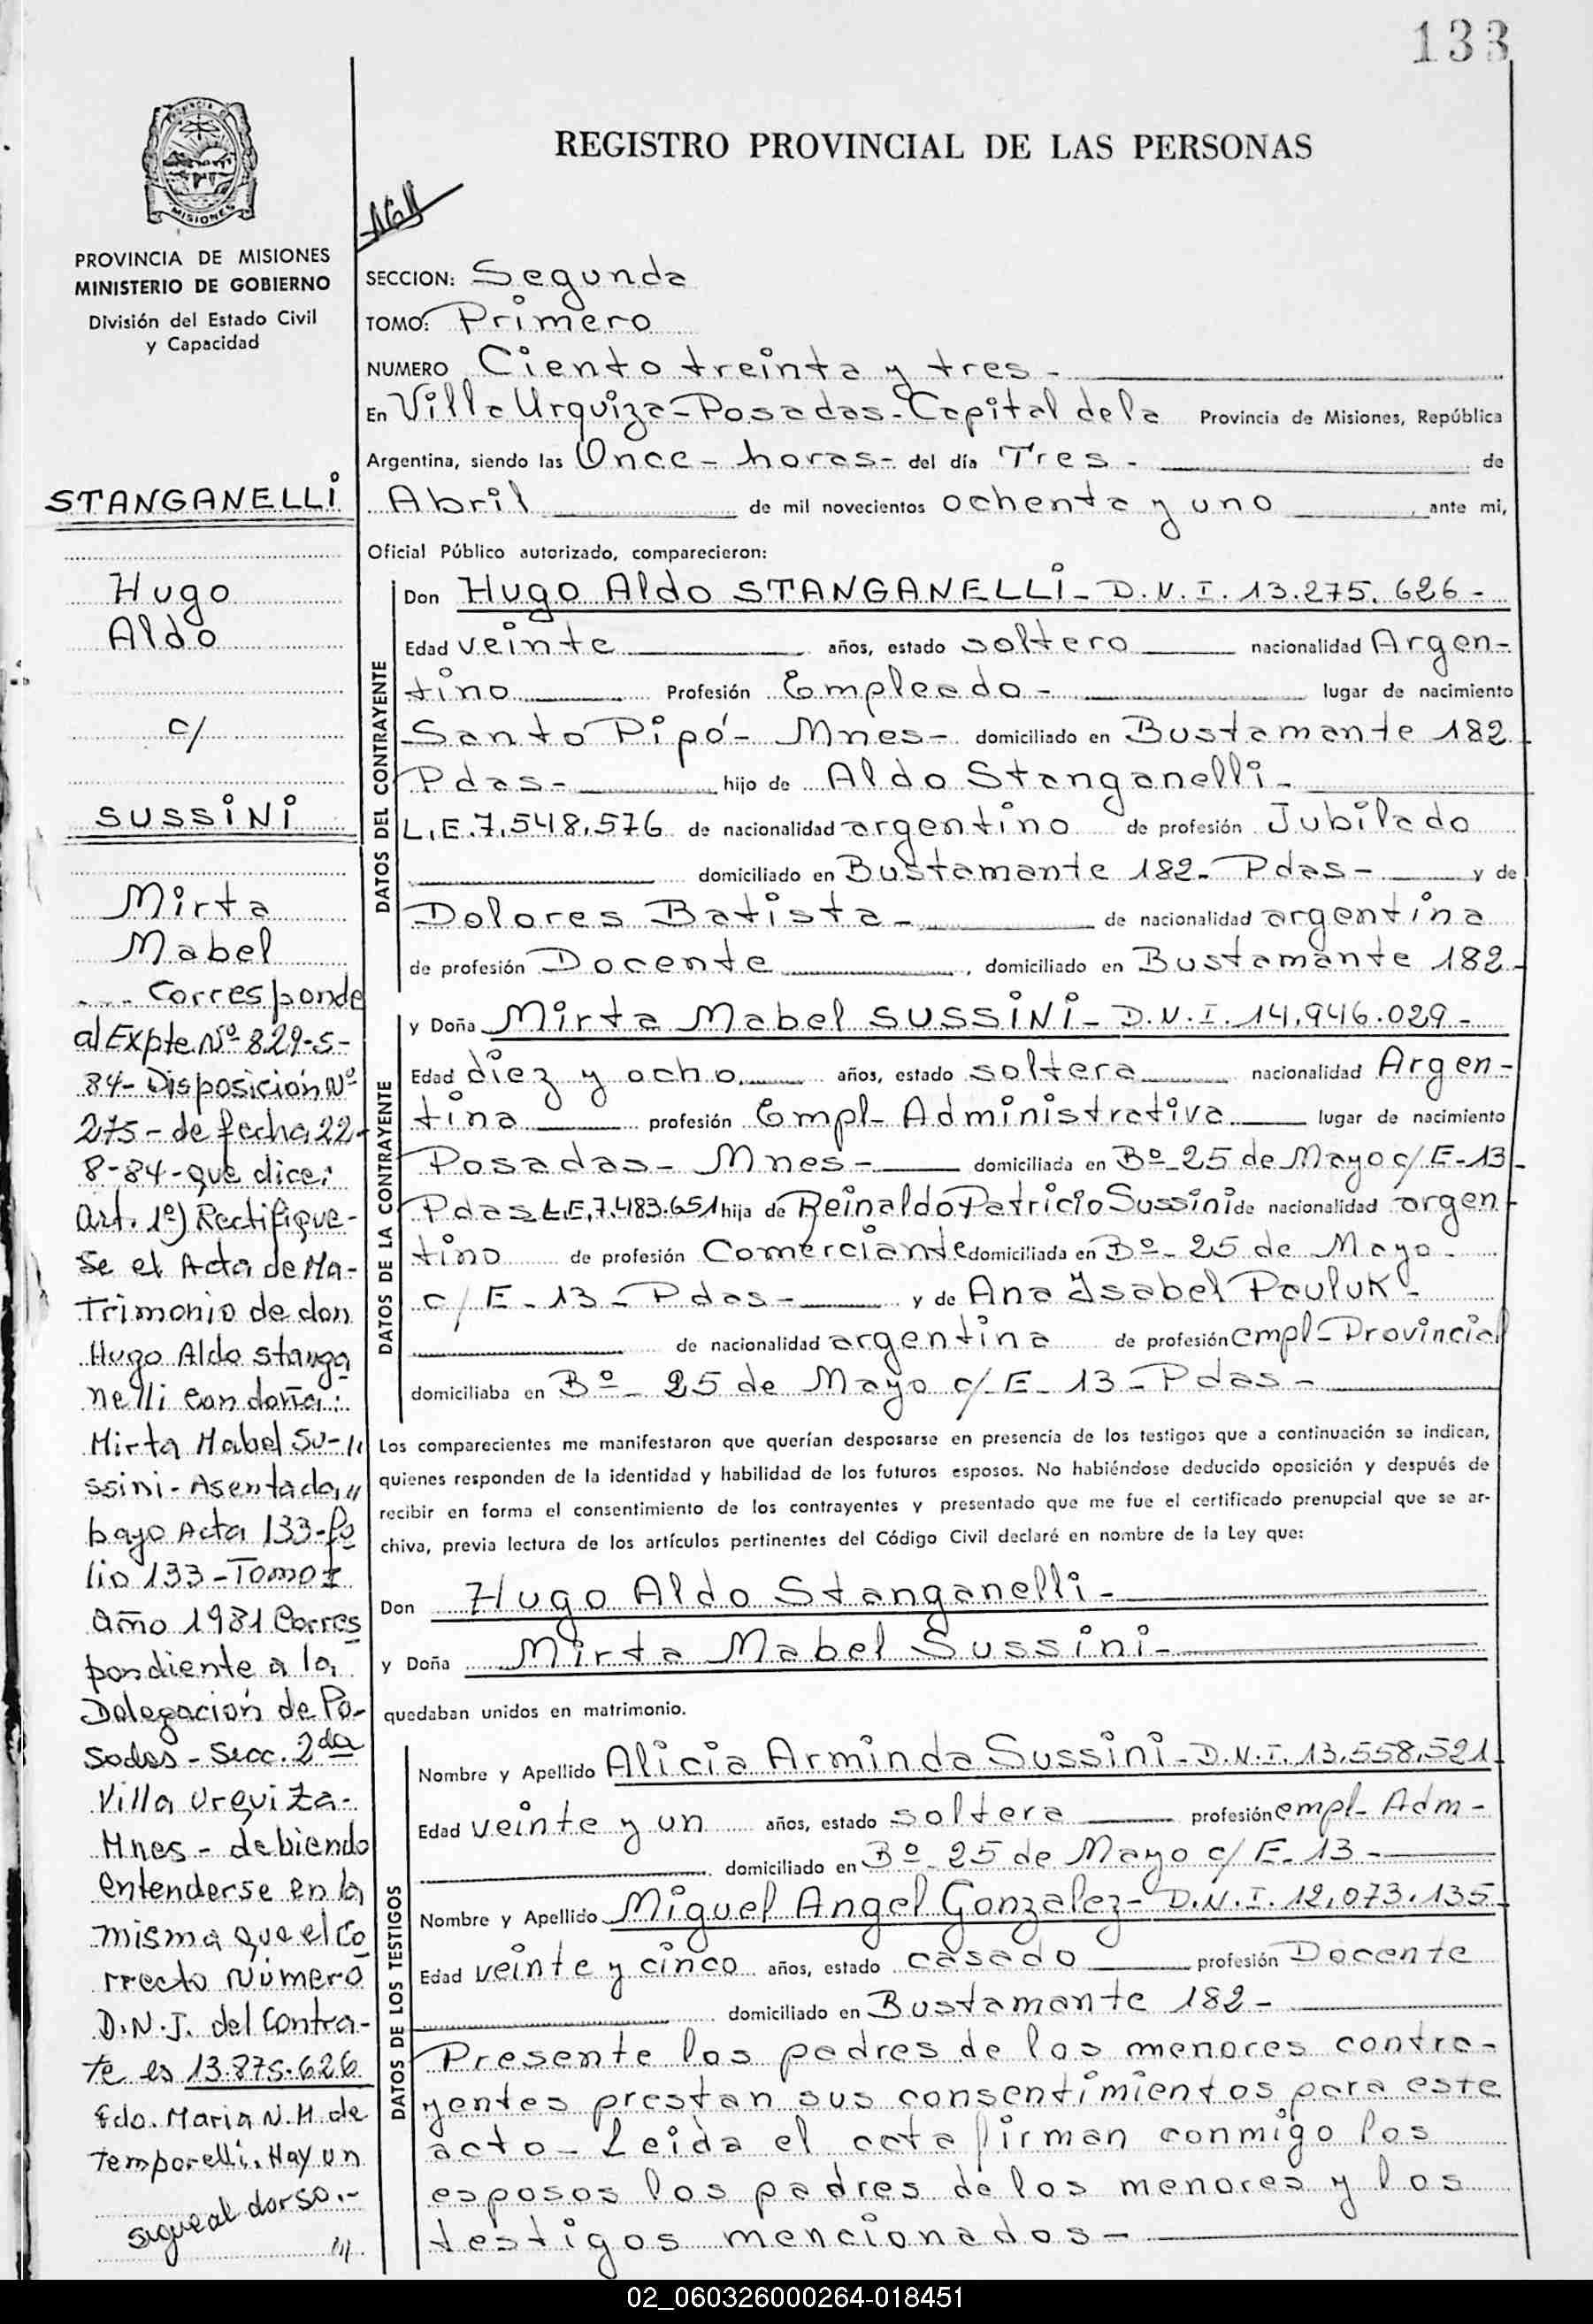 133
REGISTRO PROVINCIAL DE LAS PERSONAS
MISIONES
PROVINCIA DE MISIONES
MINISTERIO DE GOBIERNO
División del Estado Civil
y Capacidad
STANGANELLI
Hugo
Aldo
c/
SUSSINI
Mirta
Mabel
Corresponde
al Expte Nº 829-S-
84- Disposición Nº
275 - de fecha 22-
8-84 - que dice:
Art. 1º) Rectifique-
se el Acta de Ma-
trimonio de don
Hugo Aldo Stanga
nelli con doña:
Mirta Mabel Su-"
ssini - Asentada "
bajo Acta 133-fo
lio 133 - Tomo I
Año 1981 Corres
pondiente a la
Delegación de Po-
sadas - Secc. 2da
Villa Urquiza-
Mnes - debiendo
entenderse en la
misma que el co
rrecto Número
D.N.I. del Contra-
te es 13.875.626
Fdo. Maria N.H. de
Temporelli. Hay un
sigue al dorso.-
///
SECCION: Segunda
TOMO: Primero
NUMERO Ciento treinta y tres -
En Villa Urquiza - Posadas - Capital de la Provincia de Misiones, República
Argentina, siendo las Once - horas - del día Tres - de
Abril de mil novecientos ochenta y uno , ante mi,
Oficial Público autorizado, comparecieron:
DATOS DEL CONTRAYENTE
Don Hugo Aldo STANGANELLI - D.N.I. 13.275.626 -
Edad veinte años, estado soltero nacionalidad Argen-
tino Profesión Empleado - lugar de nacimiento
Santo Pipó - Mnes - domiciliado en Bustamante 182
Pdas - hijo de Aldo Stanganelli -
L.E. 7.548.576 de nacionalidad argentino de profesión Jubilado
domiciliado en Bustamante 182 - Pdas - y de
Dolores Batista - de nacionalidad argentina
de profesión Docente , domiciliado en Bustamante 182 -
DATOS DE LA CONTRAYENTE
y Doña Mirta Mabel SUSSINI - D.N.I. 14.946.029 -
Edad diez y ocho años, estado soltera nacionalidad Argen-
tina profesión Empl- Administrativa lugar de nacimiento
Posadas - Mnes - domiciliada en Bº 25 de Mayo c/E-13
Pdas L.E. 7.483.651 hija de Reinaldo Patricio Sussini de nacionalidad argen-
tino de profesión Comerciante domiciliada en Bº - 25 de Mayo -
c/E - 13 - Pdas - y de Ana Isabel Pauluk -
de nacionalidad argentina de profesión empl- Provincial
domiciliaba en Bº - 25 de Mayo c/E - 13 - Pdas -
Los comparecientes me manifestaron que querían desposarse en presencia de los testigos que a continuación se indican,
quienes responden de la identidad y habilidad de los futuros esposos. No habiéndose deducido oposición y después de
recibir en forma el consentimiento de los contrayentes y presentado que me fue el certificado prenupcial que se ar-
chiva, previa lectura de los artículos pertinentes del Código Civil declaré en nombre de la Ley que:
Don Hugo Aldo Stanganelli -
y Doña Mirta Mabel Sussini -
quedaban unidos en matrimonio.
DATOS DE LOS TESTIGOS
Nombre y Apellido Alicia Arminda Sussini - D.N.I. 13.558.521
Edad veinte y un años, estado soltera profesión empl- Adm -
domiciliado en Bº - 25 de Mayo c/E - 13 -
Nombre y Apellido Miguel Angel Gonzalez - D.N.I. 12.073.135
Edad veinte y cinco años, estado casado profesión Docente
domiciliado en Bustamante 182 -
Presente los padres de los menores contra-
yentes prestan sus consentimientos para este
acto - Leida el acta firman conmigo los
esposos los padres de los menores y los
testigos mencionados -
02_060326000264-018451